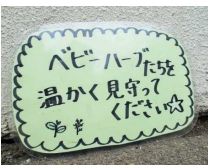 ベビーハーブたちを
温かく見守って
ください☆